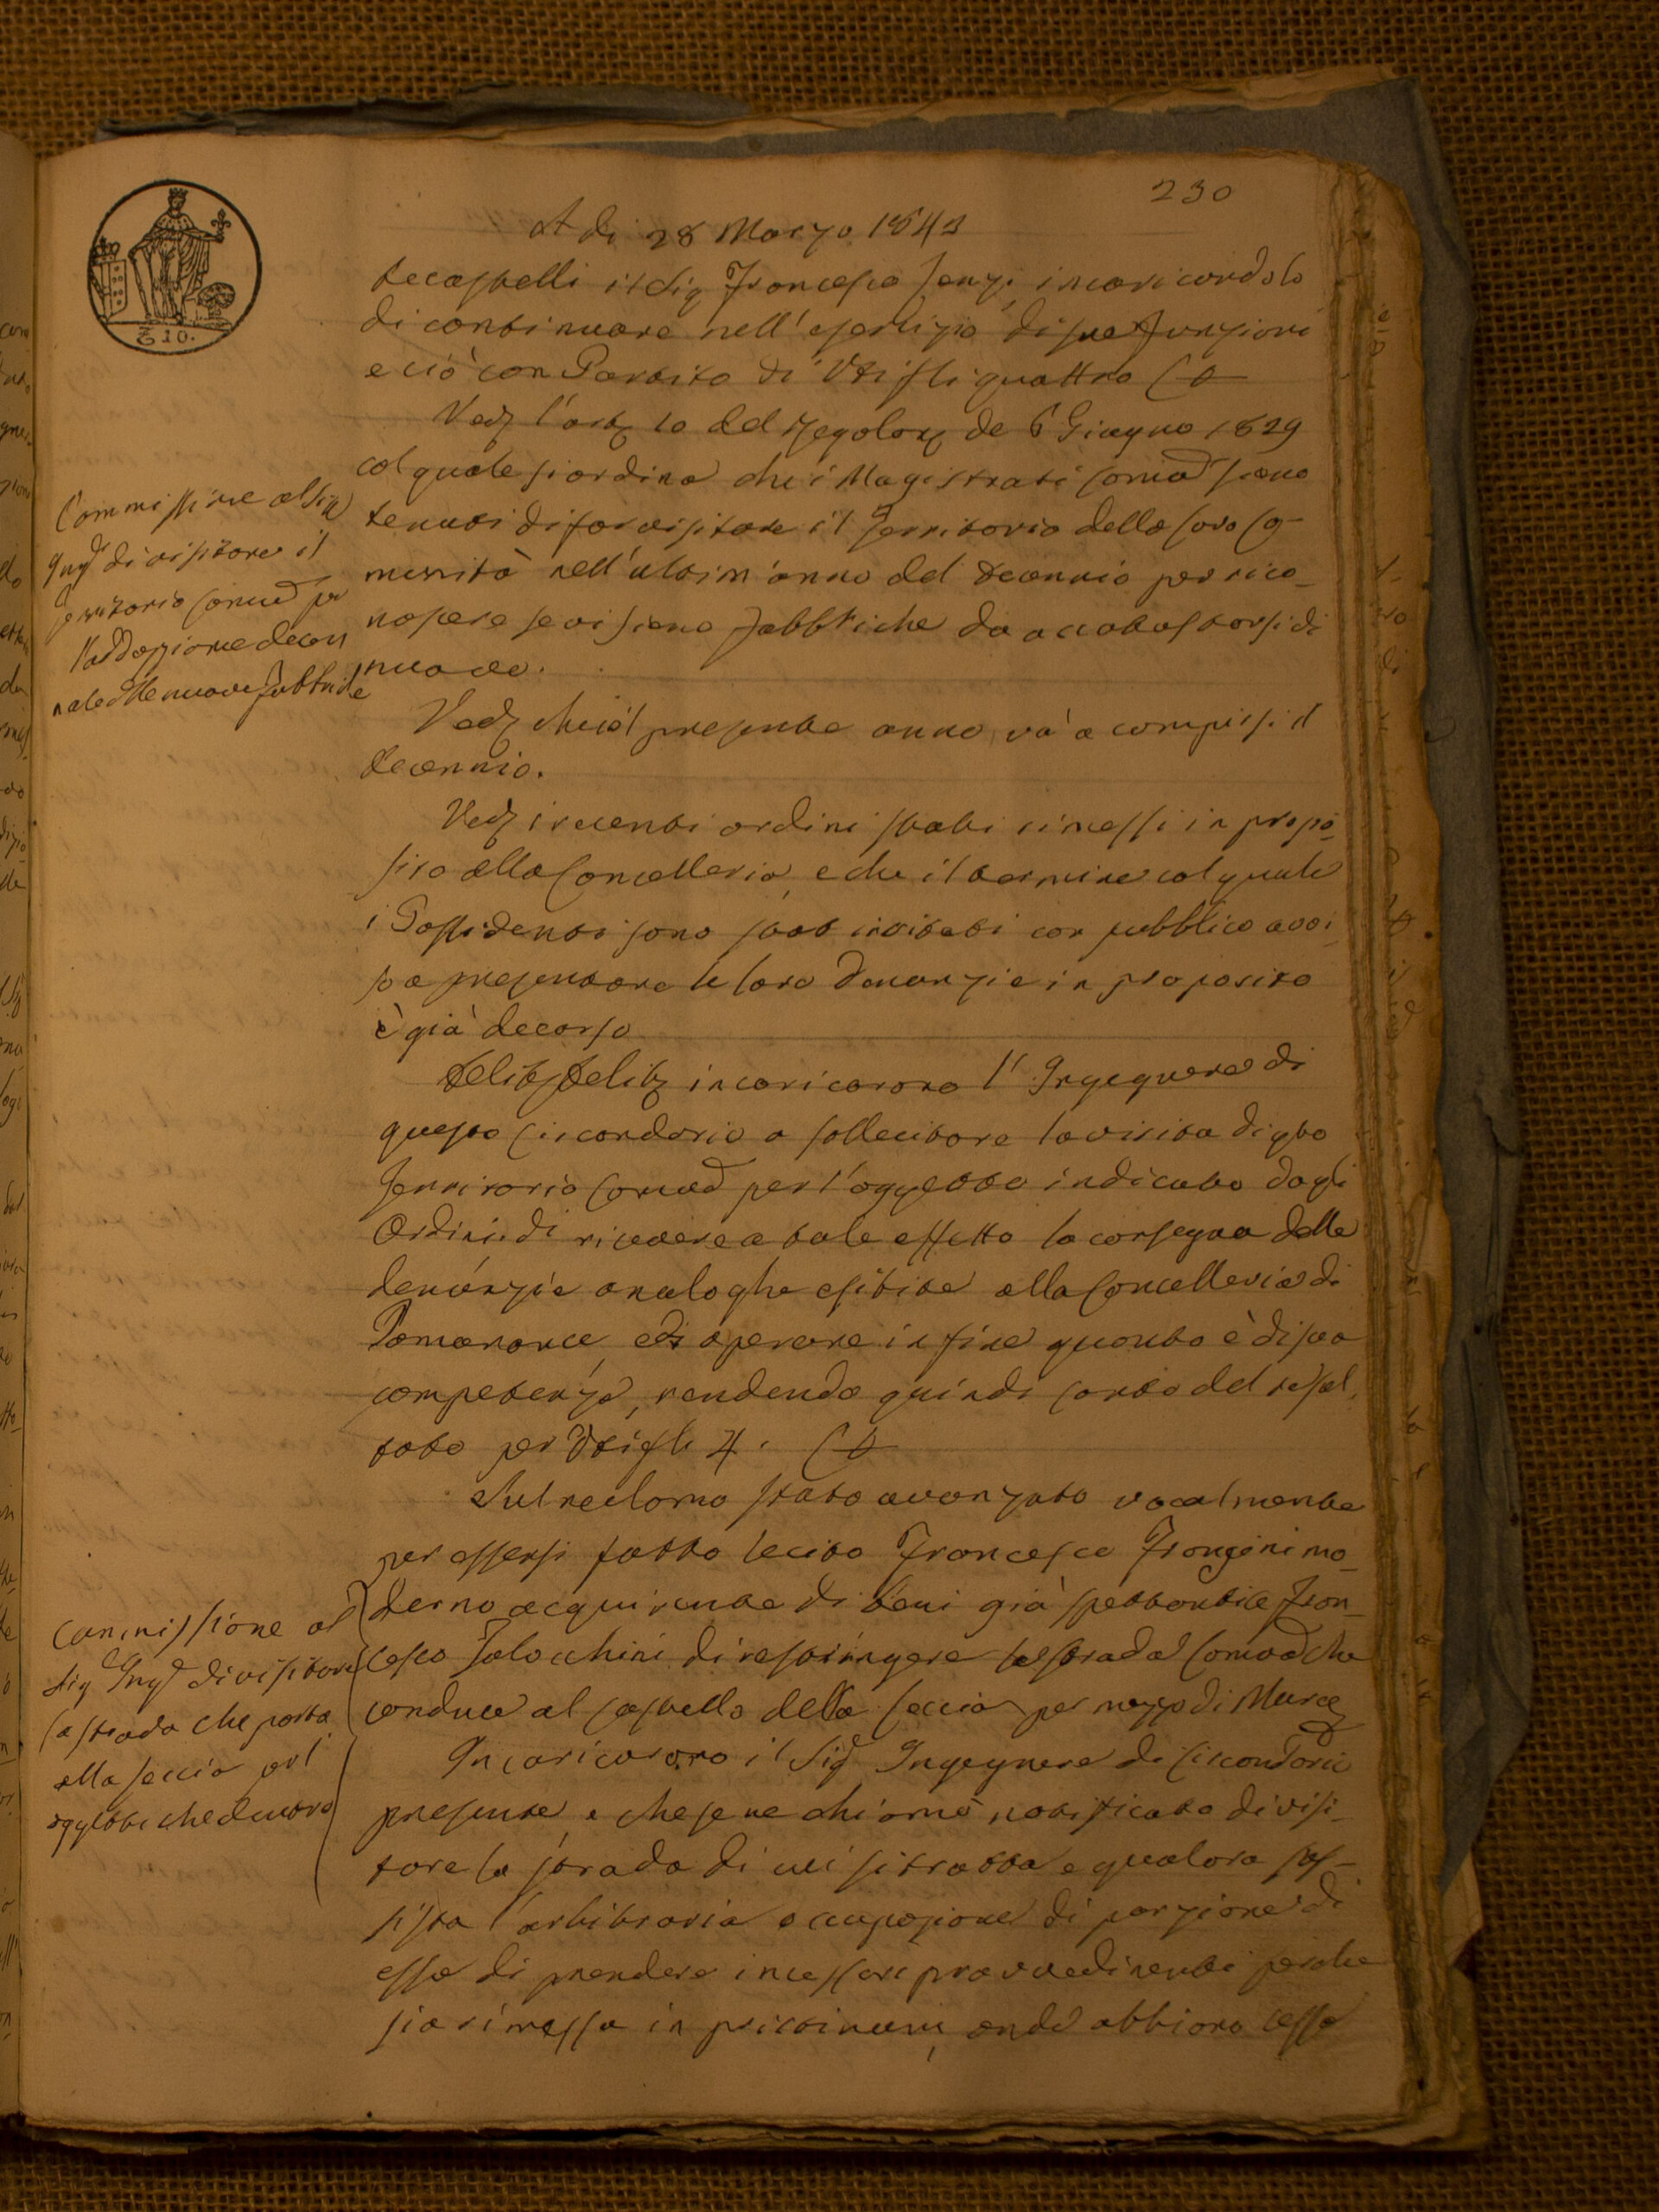 230
A di 28 Marzo 1843
tecastelli il Sig Francesco Ienzi, incaricandolo
di continuare nell'esercizio di sue funzioni
e ciò con Partito di Voti fli quattro
Ved l'art 10 del Regolam de 6 Giugno 1829
col quale si ordina che i Magistrati Comud siano
tenuti di far visitare il Territorio della loro Co-
munità nell'ultim'anno del decennio per rico-
noscere se vi siano Fabbriche da accatastarsi di
nuovo.
Commissione al Sig
Ingd di visitare il
Territorio Comud per
l'addozione decen
nale delle nuove fabbriche
Ved che col presente anno và a compirsi il
decennio.
Ved i recenti ordini stati rimessi in propo-
sito alla Cancelleria, e che il termine col quale
i Possidenti sono stati invitati con pubblico avvi-
so a presentare le loro denunzie in proposito
è già decorso
Delib Delib incaricarono l'Ingegnere di
questo Circondario a sollecitare la visita di qto
Territorio Comud per l'oggetto indicato dagli
Ordini di ricevere a tale effetto la consegna delle
denunzie analoghe esibite alla Cancelleria di
Pomarance, ed operare in fine quanto è di sua
competenza, rendendo quindi conto del resul-
tato per Voti fli 4.
Sul reclamo stato avanzato vocalmente
per essersi fatto lecito Francesco Frongini mo-
derno acquirente di beni già spettanti a Fran-
cesco Talocchini di restringere la strada Comud che
conduce al Castello della Leccia per mezzo di Muro
Commissione al
Sig Ingd di visitare
la strada che porta
alla Leccia per l'
oggetto che di contro
Incaricarono il Sigd Ingegnere di Circondario
presente, e che se ne chiamò notificato di visi-
tare la strada di cui si tratta e qualora sus-
sista l'arbitraria occupazione di porzione di
essa di prendere i necessari provvedimenti perche
sia rimessa in pristinum, onde abbiano cesso